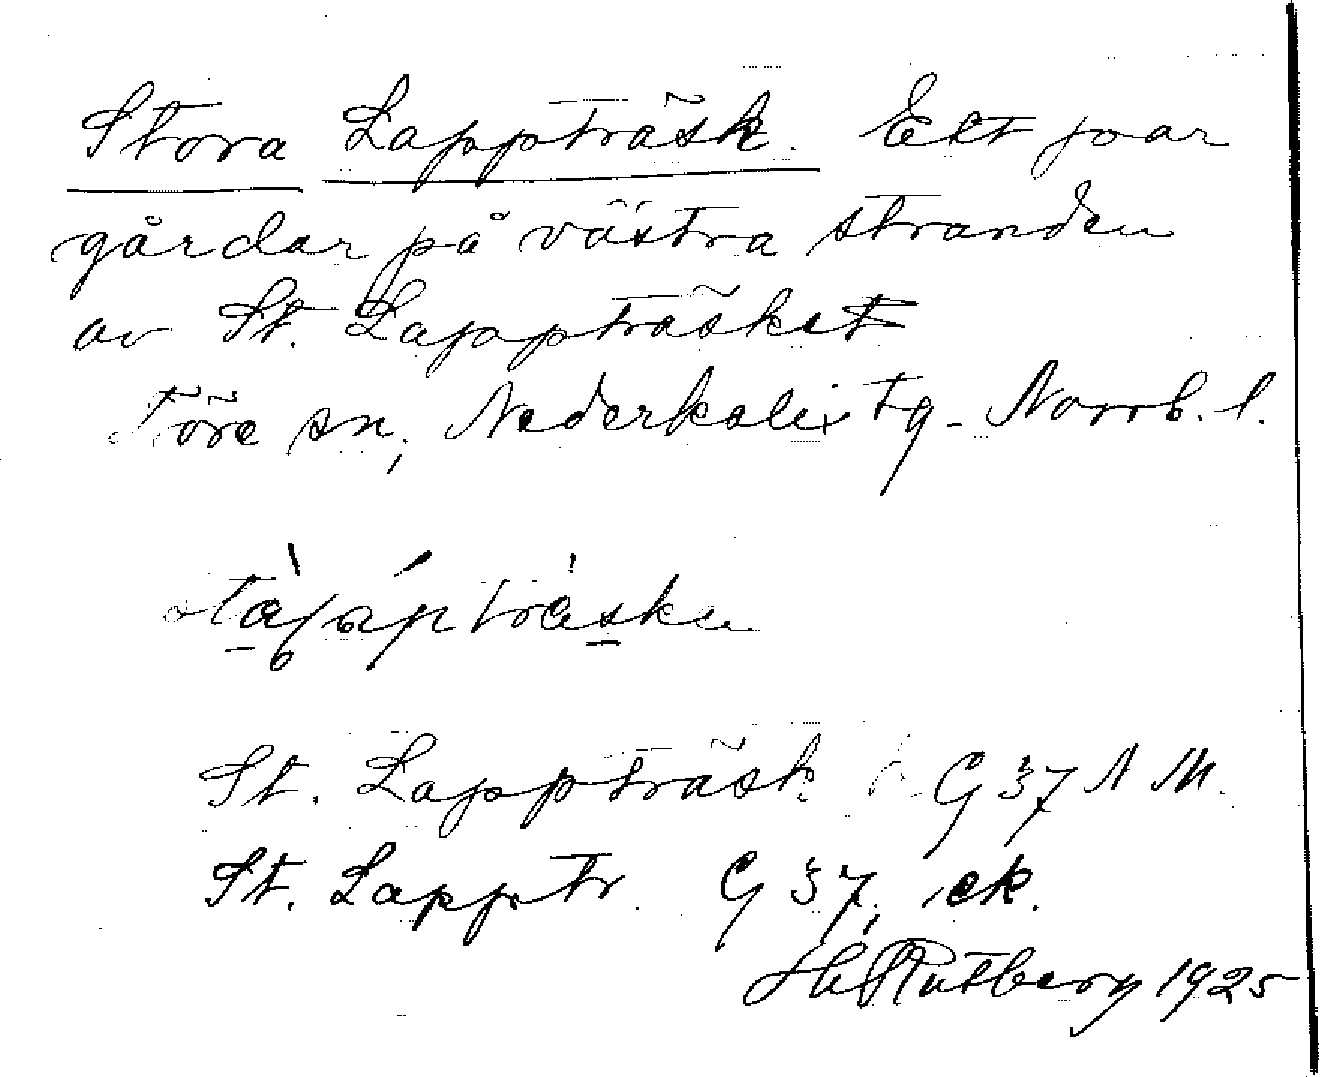 Stora Lappträsk. Ett par
gårdar på västra stranden
av St. Lappträsket
Töre sn, Nederkalix tg. Norrb. l.
St. Lappträsk G 37 N M.
St. Lapptr. G 37, ek.
H. Rutberg 1925